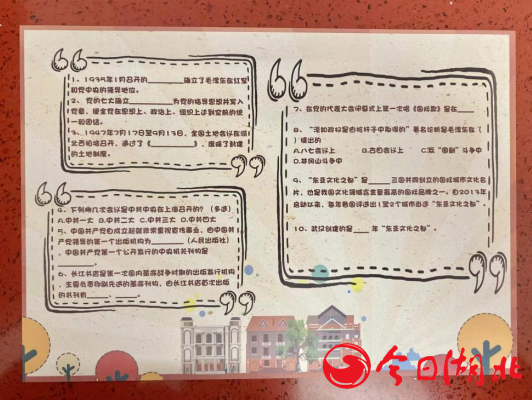 1、1935年1月召开的________确立了毛泽东在红军
和党中央的领导地位。
2、党的七大确立________为党的指导思想并写入
党章，使全党在思想上、政治上、组织上达到空前的统
一和团结。
3、1947年7月17日至9月13日，全国土地会议在河
北西柏坡召开，通过了《________》，废除了封建
的土地制度。
4、下列哪几次会议是中共中央在上海召开的？（多选）
A.中共一大 B.中共二大 C.中共三大 D.中共四大
5、中国共产党自成立起就非常重视宣传事业，由中国共
产党领导的第一个出版机构为________（人民出版社）
，中国共产党第一个公开发行的中央机关刊物是
________。
6、长江书店是第一次国内革命战争时期的出版发行机构
，主要负责印刷先进的革命刊物，由长江书店首次出版
的书刊有________ ________。
7、在党的代表大会闭幕式上第一次唱《国际歌》是在____
8、“须知政权是由枪杆子中取得的”著名论断是毛泽东在（ ）
提出的
A.八七会议上 B.古田会议上 C.反“围剿”斗争中
D.井冈山斗争中
9、“东亚文化之都”是____三国共同创立的国际城市文化名
片，也是我国文化领域含金量最高的国际品牌之一。自2013年
启动以来，每年各国评选出1至2个城市当选“东亚文化之都”。
10、武汉创建的是____年“东亚文化之都”。
今日湖北